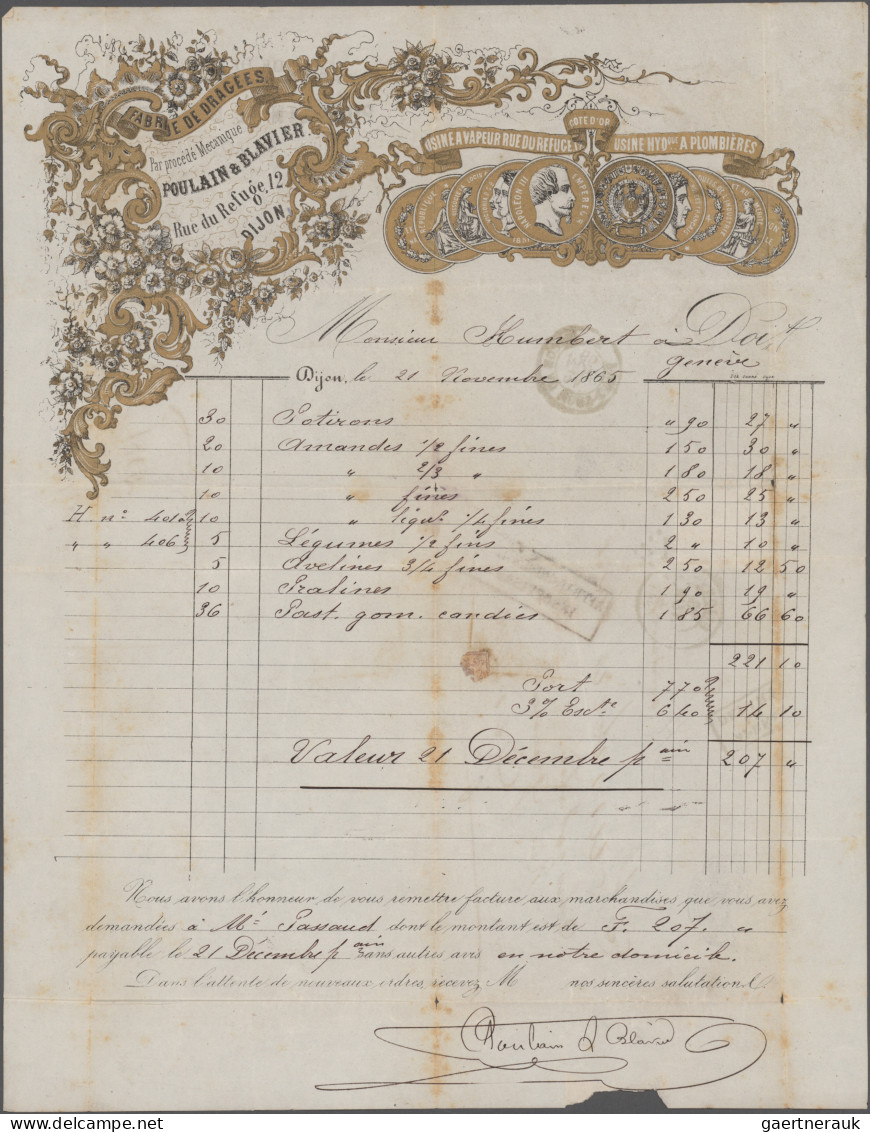 FABR E DE DRAGÉES
Par procédé Mécanique
POULAIN & BLAVIER
Rue du Refuge, 12
DIJON
CÔTE D'OR
USINE A VAPEUR RUE DU REFUGE
USINE HYDque A PLOMBIÈRES
NAPOLEON III EMPEREUR
Monsieur Humbert à
Genève
Dijon, le 21 Novembre 1865
30 Potirons " 90 27 "
20 Amandes 1/2 fines 1 50 30 "
10 " 2/3 " 1 80 18 "
10 " fines 2 50 25 "
H nos 401 10 " légul 1/4 fines 1 30 13 "
" " 406 5 Légumes 1/2 fins 2 " 10 "
5 Avelines 3/4 fines 2 50 12 50
10 Pralines 1 90 19 "
36 Past. gom. candies 1 85 66 60
221 10
Port 7 70
3% Escte 6 40 14 10
Valeur 21 Décembre pain 207 "
" "
Nous avons l'honneur de vous remettre facture aux marchandises que vous avez
demandées à Mr Passaud dont le montant est de F. 207. "
payable le 21 Décembre pain sans autres avis en notre domicile.
Dans l'attente de nouveaux ordres, recevez M nos sincères salutations
Poulain & Blavier
gaertnerauk